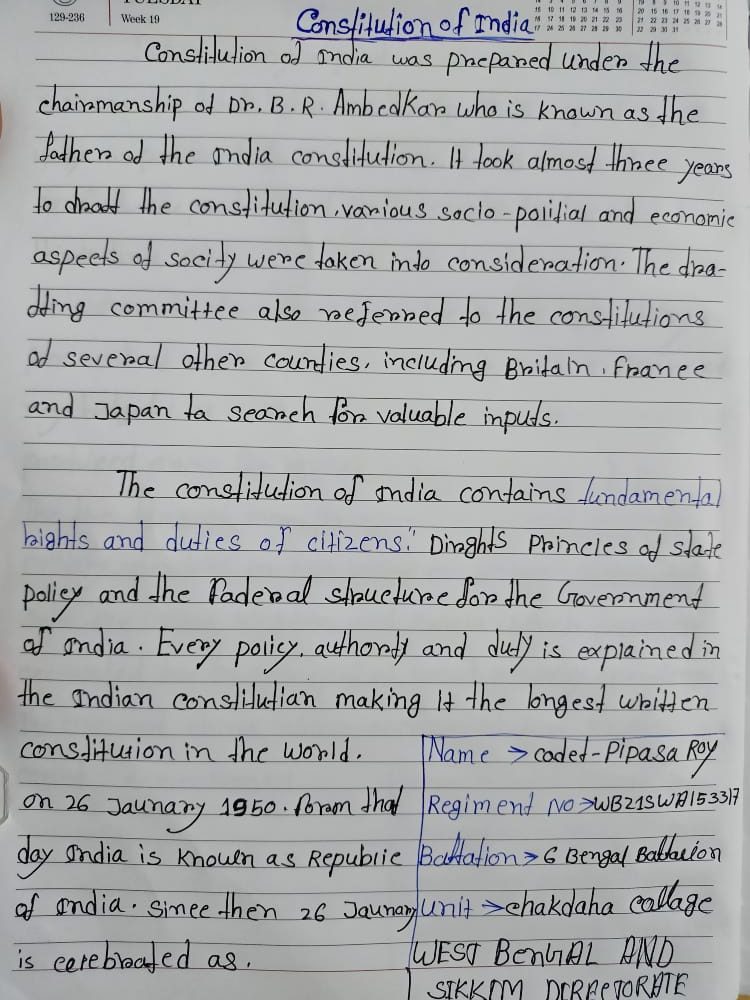 129-236
Week 19
Constitution of India
Constilution of India was prepared under the
chairmanship of Dr. B. R. AmbedKar who is known as the
father of the India constitution. It took almost three years
to draft the constitution, various socio-politial and economic
aspects of socity were taken into consideration. The dra-
fting committee also referred to the constitutions
of several other counties, including Britain, France
and Japan ta search for valuable inputs.
The constitution of India contains fundamental
rights and duties of citizens." Dirghts Princles of state
policy and the Faderal structure for the Government
of India. Every policy, authority and duty is explained in
the Indian constitutian making It the longest written
constituion in the world.
on 26 Jaunary 1950. From that
day India is Knowen as Republic
of India. since then 26 Jaunary
is cerebrated as.
Name → cadet-Pipasa Roy
Regiment No → WB21SWA153317
Battation → 6 Bengal Battalion
Unit → chakdaha callage
WEST BenGAL AND
SIKKIM DIRRECTORATE